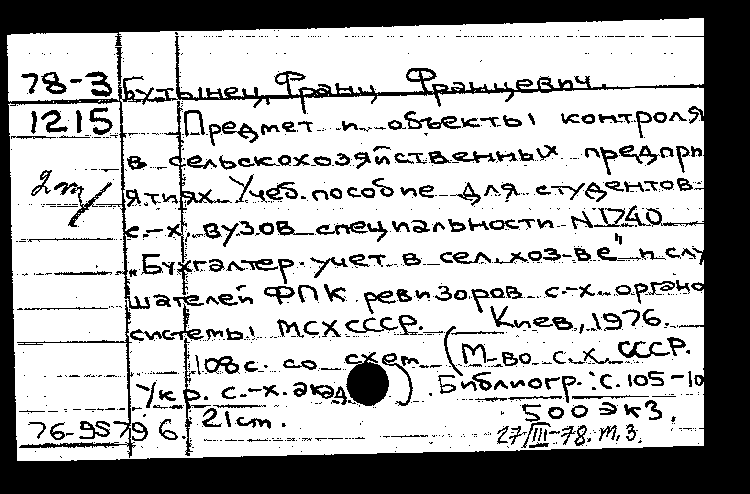 78-3 Бутынец, Франц Францевич.
1215 Предмет и объекты контроля
в сельскохозяйственных предпри
ятиях. Учеб. пособие для студентов
с.-х. вузов специальности N 1740
„Бухгалтер. учет в сел. хоз-ве" и слу
шателей ФПК ревизоров с.-х. органо
системы МСХ СССР. Киев, 1976.
108 с. со схем (М-во с.х. СССР.
Укр. с.-х. акад ) . Библиогр.: с. 105-10
21 cm. 500 экз.
76-95796 27/III-78. т. 3.